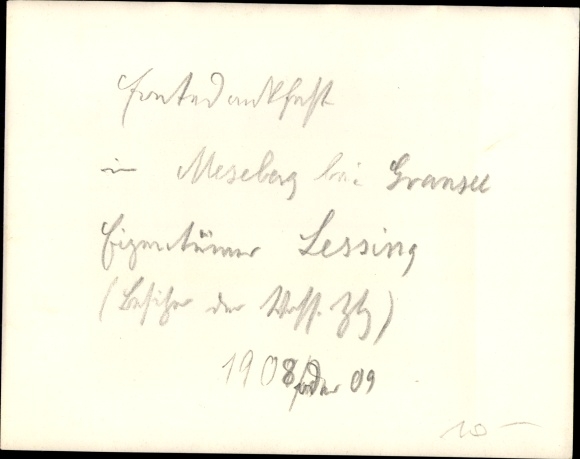 Erntedankfest
in Meseberg bei Gransee
Eigentümer Lessing
(Besitzer der Voss. Ztg)
1908/oder 09
10 —